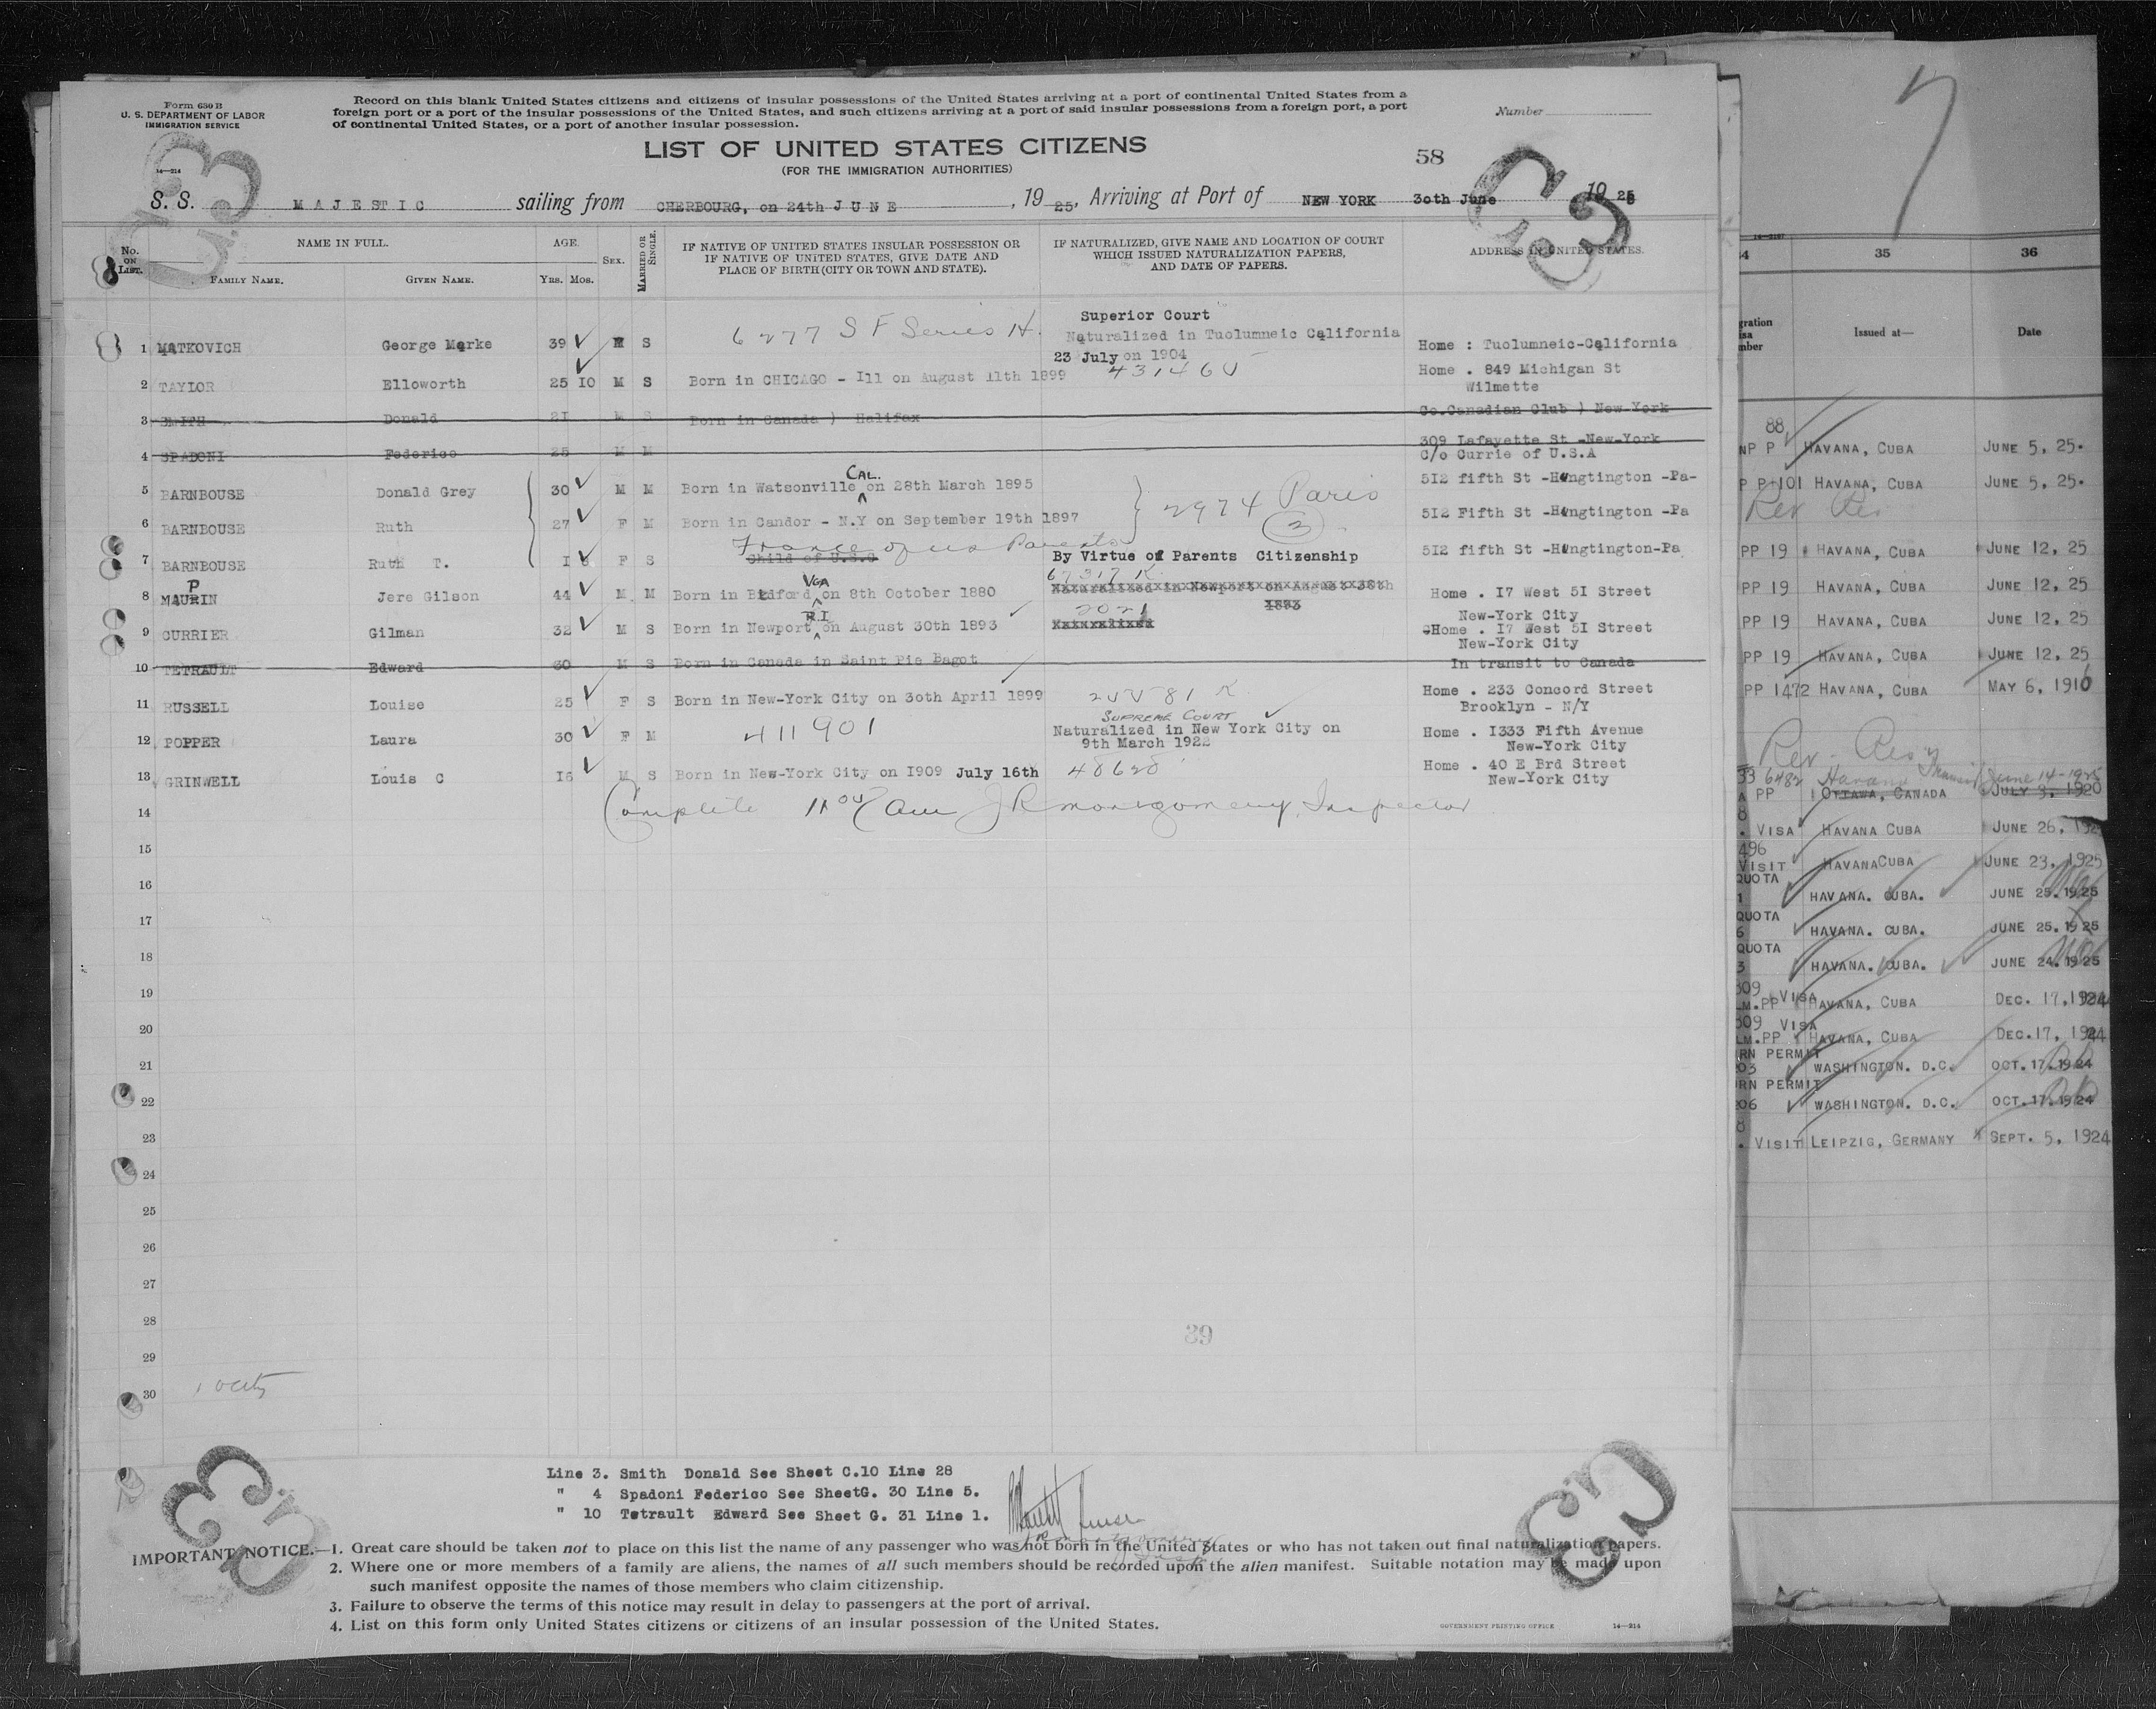 Form 630 B
U. S. DEPARTMENT OF LABOR
IMMIGRATION SERVICE
14—214
Record on this blank United States citizens and citizens of insular possessions of the United States arriving at a port of continental United States from a
foreign port or a port of the insular possessions of the United States, and such citizens arriving at a port of said insular possessions from a foreign port, a port
of continental United States, or a port of another insular possession.
Number
LIST OF UNITED STATES CITIZENS
(FOR THE IMMIGRATION AUTHORITIES)
58
S. S. MAJESTIC sailing from CHERBOURG, on 24th JUNE, 1925, Arriving at Port of NEW YORK 30th June 1925
No. ON LIST. NAME IN FULL. AGE. SEX. MARRIED OR SINGLE. IF NATIVE OF UNITED STATES INSULAR POSSESSION OR IF NATIVE OF UNITED STATES, GIVE DATE AND PLACE OF BIRTH (CITY OR TOWN AND STATE). IF NATURALIZED, GIVE NAME AND LOCATION OF COURT WHICH ISSUED NATURALIZATION PAPERS, AND DATE OF PAPERS. ADDRESS IN UNITED STATES.
FAMILY NAME. GIVEN NAME. Yrs. Mos.
Superior Court
1 MATKOVICH George Marke 39 M S 6277 S F Series H. Naturalized in Tuolumneic California Home : Tuolumneic-California
23 July on 1904
2 TAYLOR Elloworth 25 IO M S Born in CHICAGO - Ill on August 11th 1899 Home . 849 Michigan St
Wilmette
3 SMITH Donald 2I M S Born in Canada ) Halifax Co.Canadian Club ) New-York
309 Lafayette St -New-York
4 SPADONI Federico 25 M M C/o Currie of U.S.A
CAL.
5 BARNBOUSE Donald Grey 30 M M Born in Watsonville on 28th March 1895 5I2 fifth St -Hungtington -Pa-
2974 Paris
6 BARNBOUSE Ruth 27 F M Born in Candor - N.Y on September 19th 1897 5I2 Fifth St -Hungtington -Pa
3
France of us Parents
7 BARNBOUSE Ruth T. I F S Child of U.S.G By Virtue of Parents Citizenship 5I2 fifth St -Hungtington-Pa
P VGA 67317 K
8 MAURIN Jere Gilson 44 M M Born in Bedford on 8th October 1880 Naturalized in Newport on August 30th Home . I7 West 5I Street
1893
New-York City
R.I 2021
9 CURRIER Gilman 32 M S Born in Newport on August 30th 1893 Home . I7 West 5I Street
New-York City
10 TETRAULT Edward 60 M S Born in Canada in Saint Pie Bagot In transit to Canada
11 RUSSELL Louise 25 F S Born in New-York City on 30th April 1899 Home . 233 Concord Street
Brooklyn - N/Y
SUPREME COURT
12 POPPER Laura 30 F M 411901 Naturalized in New York City on Home . I333 Fifth Avenue
9th March 1922 New-York City
13 GRINWELL Louis C I6 M S Born in New-York City on I909 July 16th 48628 Home . 40 E Brd Street
New-York City
14 Complete am J R Montgomery, Inspector
15
16
17
18
19
20
21
22
23
24
25
26
27
28
39
29
30
Line 3. Smith Donald See Sheet C.10 Line 28
" 4 Spadoni Federico See SheetG. 30 Line 5.
" 10 Tetrault Edward See Sheet G. 31 Line 1.
IMPORTANT NOTICE.—1. Great care should be taken not to place on this list the name of any passenger who was not born in the United States or who has not taken out final naturalization papers.
2. Where one or more members of a family are aliens, the names of all such members should be recorded upon the alien manifest. Suitable notation may be made upon
such manifest opposite the names of those members who claim citizenship.
3. Failure to observe the terms of this notice may result in delay to passengers at the port of arrival.
4. List on this form only United States citizens or citizens of an insular possession of the United States.
GOVERNMENT PRINTING OFFICE 14—214
35 36
Issued at— Date
88
NP P HAVANA, CUBA JUNE 5, 25.
P P 101 HAVANA, CUBA JUNE 5, 25.
PP 19 HAVANA, CUBA JUNE 12, 25
PP 19 HAVANA, CUBA JUNE 12, 25
PP 19 HAVANA, CUBA JUNE 12, 25
PP 19 HAVANA, CUBA JUNE 12, 25
PP 1472 HAVANA, CUBA MAY 6, 1916
33 6482 Havana Transit June 14-1925
PP OTTAWA, CANADA JULY 3, 1920
VISA HAVANA CUBA JUNE 26, 192
496
VISIT HAVANACUBA JUNE 23, 1925
QUOTA
1 HAVANA. CUBA. JUNE 25. 1925
QUOTA
6 HAVANA. CUBA. JUNE 25. 1925
QUOTA
3 HAVANA. CUBA. JUNE 24. 1925
309 VISA
LM. PP HAVANA, CUBA DEC. 17, 1924
309 VISA
LM. PP HAVANA, CUBA DEC. 17, 1924
RN PERMIT
203 WASHINGTON. D.C. OCT. 17. 1924
RN PERMIT
206 WASHINGTON. D.C. OCT. 17. 1924
8
VISIT LEIPZIG, GERMANY SEPT. 5, 1924